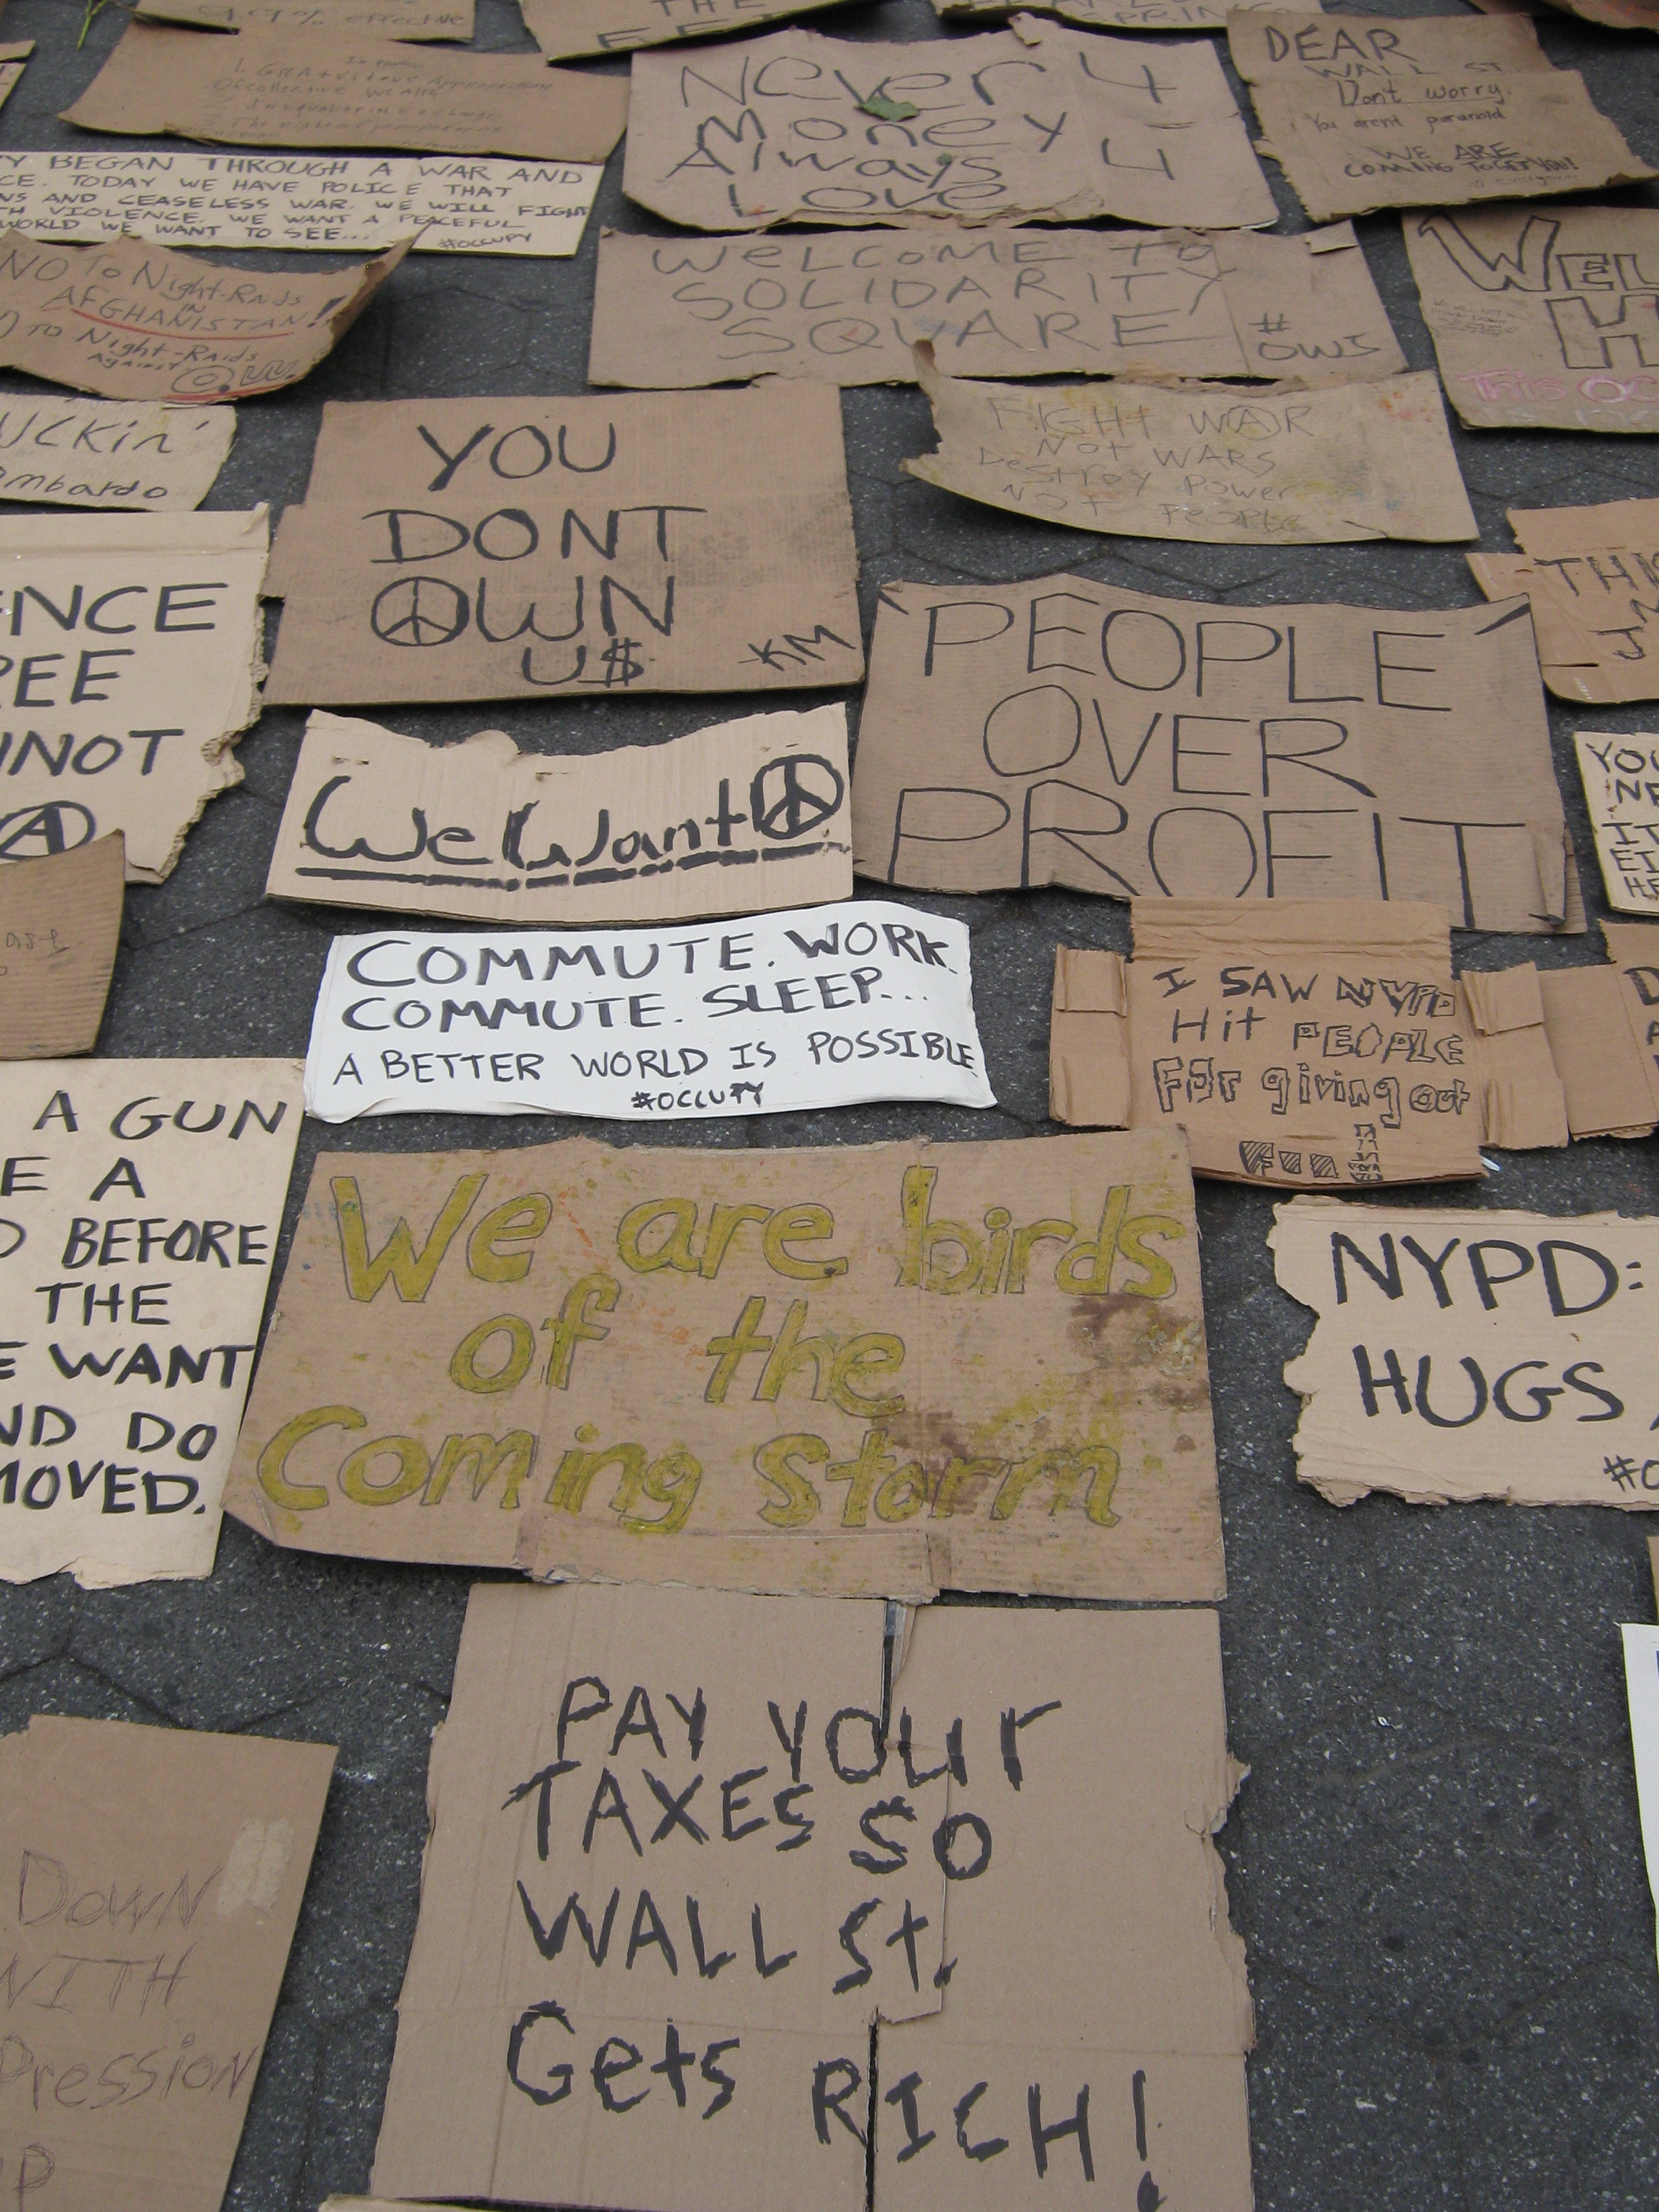 99% effective
THE
1. GRAtuitous Appropriation
Of collective WEALth
2. Inequality in Exchange
Never 4
Money
Always 4
Love
DEAR
WALL ST.
Don't worry.
You arent paranoid
WE ARE
COMING TO GET YOU!
Y BEGAN THROUGH A WAR AND
CE. TODAY WE HAVE POLICE THAT
NS AND CEASELESS WAR. WE WILL FIGHT
TH VIOLENCE. WE WANT A PEACEFUL
WORLD WE WANT TO SEE...
#OCCUPY
NO To Night-Raids
IN
AFGHANISTAN!
TO Night-Raids
Against
WELCOME TO
SOLIDARITY
SQUARE
#
OWS
WEL
H
This OC
UCKin'
mbardo
YOU
DONT
OWN
U$
KM
FIGHT WAR
NOT WARS
DeSTroy Power
NOT PEOPLE
ENCE
REE
NNOT
A
"PEOPLE"
OVER
PROFIT
THI
We Want
YOU
NE
IT
EI
HE
COMMUTE. WORK.
COMMUTE. SLEEP...
A BETTER WORLD IS POSSIBLE
#OCCUPY
I SAW NYPD
Hit PEOPLE
FOr giving out
A GUN
E A
D BEFORE
THE
E WANT
ND DO
MOVED.
We are birds
of the
Coming Storm
NYPD:
HUGS
#O
PAY YOur
TAXES SO
WALL St.
Gets RICH!
DOWN
WITH
Pression
P